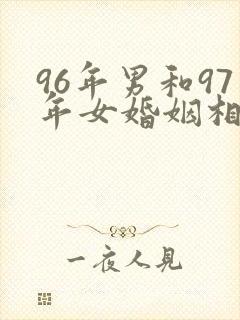 96年男和97
年女婚姻相
一夜人见